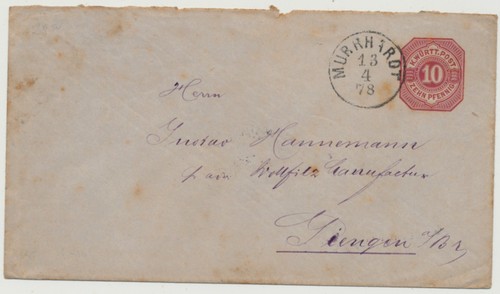 MURRHARDT
13
4
78
K. WÜRTT. POST
10
ZEHN PFENNIG
Herrn
Gustav Hannemann
Wollfilz Manufactur
Giengen a/Br